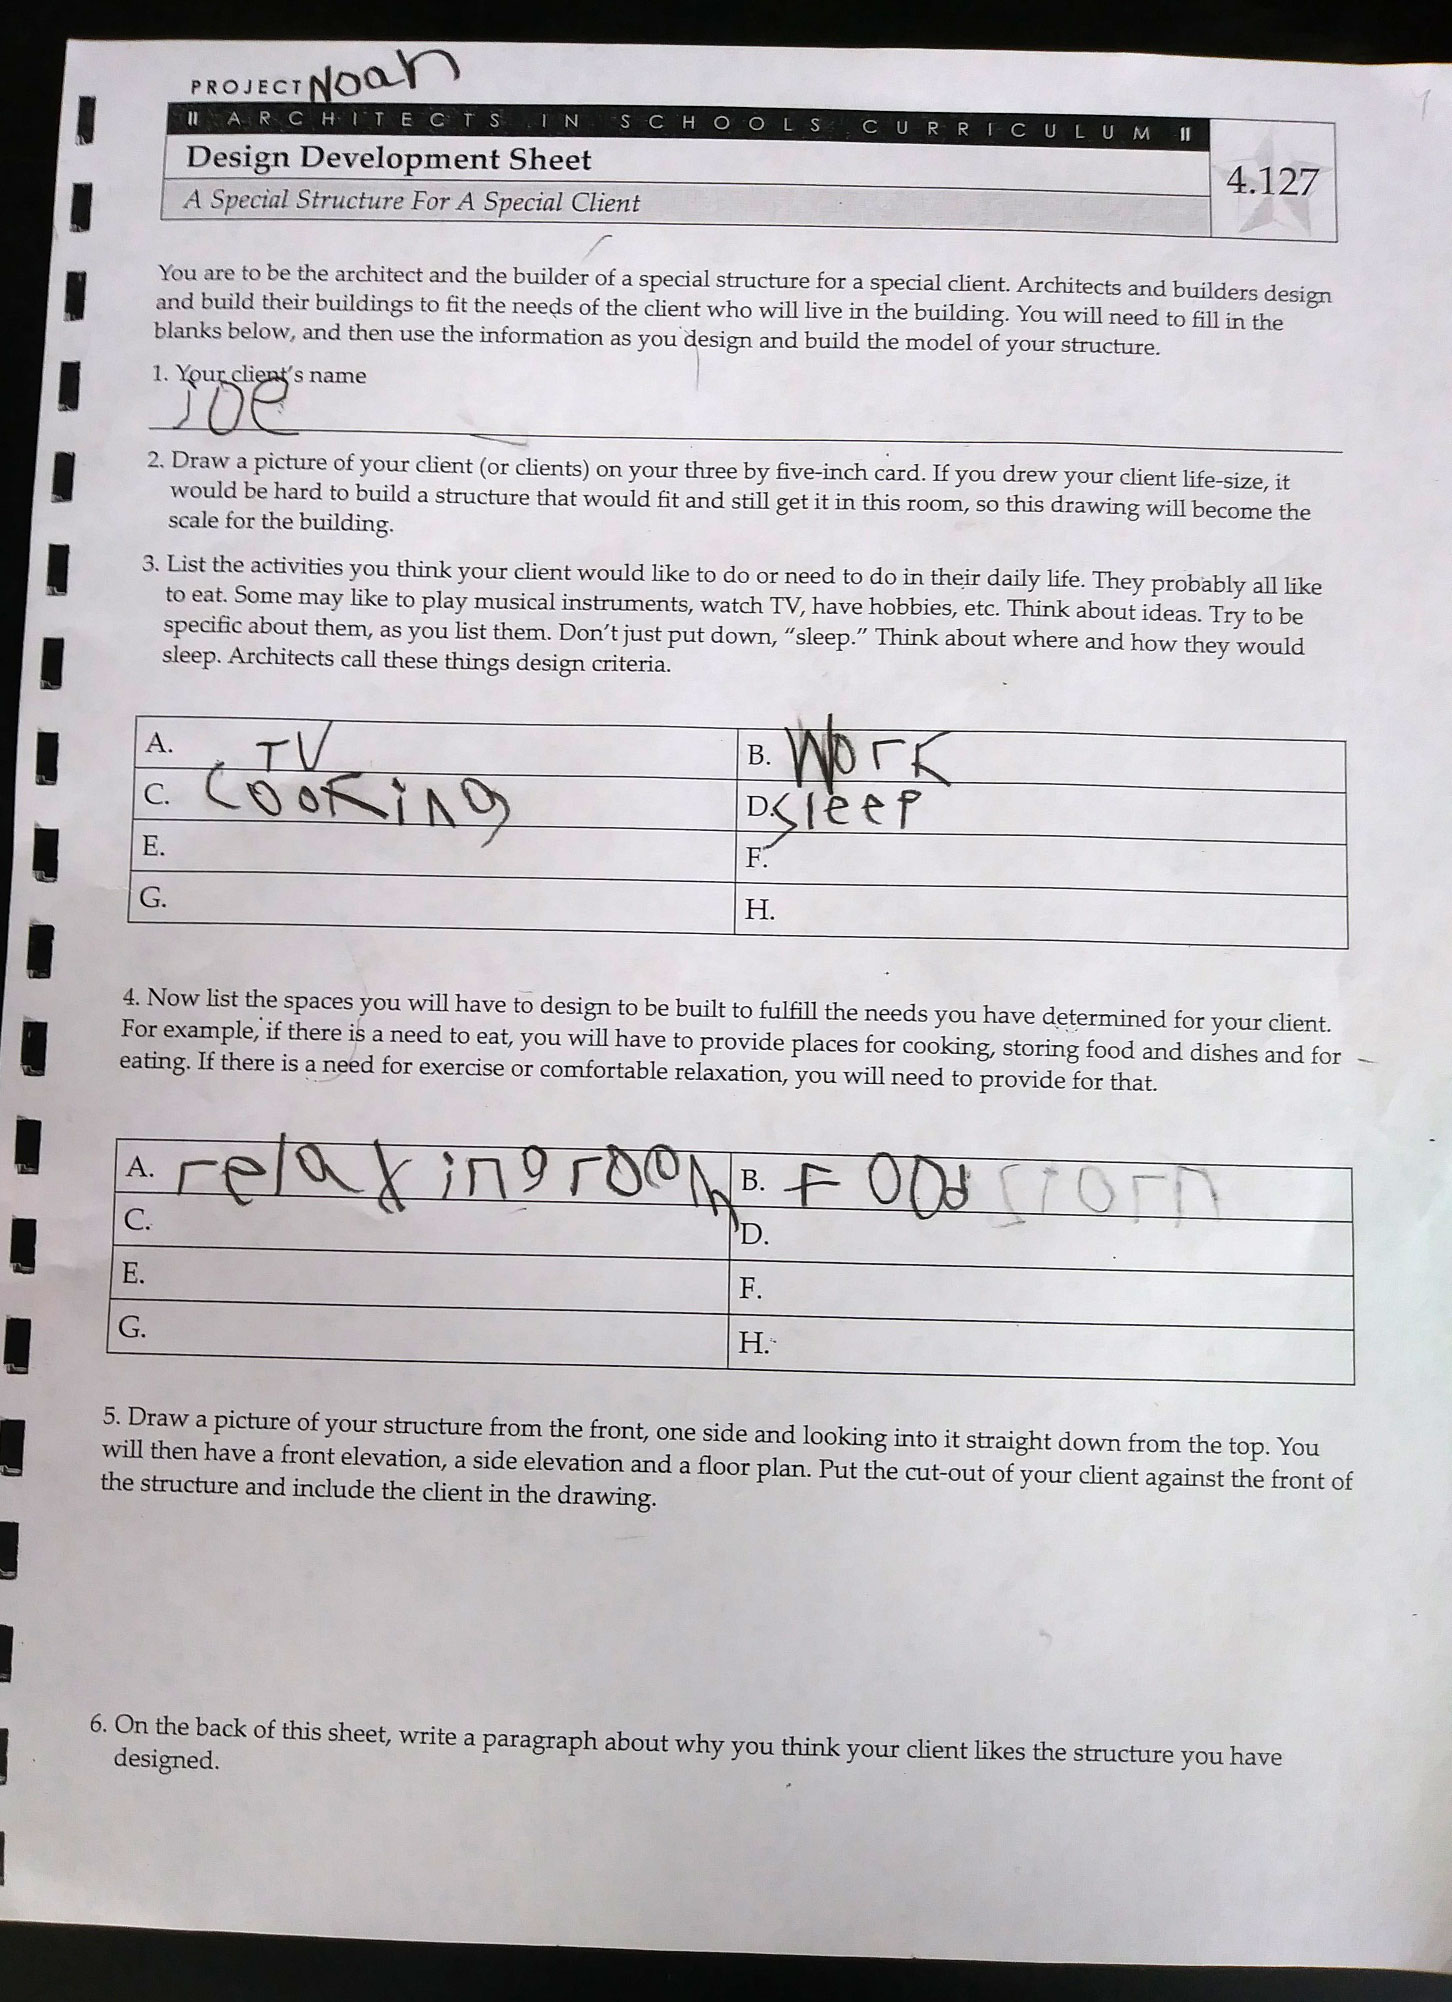 PROJECT Noah
ARCHITECTS IN SCHOOLS CURRICULUM
Design Development Sheet
4.127
A Special Structure For A Special Client
You are to be the architect and the builder of a special structure for a special client. Architects and builders design
and build their buildings to fit the needs of the client who will live in the building. You will need to fill in the
blanks below, and then use the information as you design and build the model of your structure.
1. Your client's name
joe
2. Draw a picture of your client (or clients) on your three by five-inch card. If you drew your client life-size, it
would be hard to build a structure that would fit and still get it in this room, so this drawing will become the
scale for the building.
3. List the activities you think your client would like to do or need to do in their daily life. They probably all like
to eat. Some may like to play musical instruments, watch TV, have hobbies, etc. Think about ideas. Try to be
specific about them, as you list them. Don't just put down, "sleep." Think about where and how they would
sleep. Architects call these things design criteria.
A. TV
B. Work
C. Cooking
D. sleep
E.
F.
G.
H.
4. Now list the spaces you will have to design to be built to fulfill the needs you have determined for your client.
For example, if there is a need to eat, you will have to provide places for cooking, storing food and dishes and for
eating. If there is a need for exercise or comfortable relaxation, you will need to provide for that.
A. relaxing room
B. Food
C.
D.
E.
F.
G.
H.
5. Draw a picture of your structure from the front, one side and looking into it straight down from the top. You
will then have a front elevation, a side elevation and a floor plan. Put the cut-out of your client against the front of
the structure and include the client in the drawing.
6. On the back of this sheet, write a paragraph about why you think your client likes the structure you have
designed.